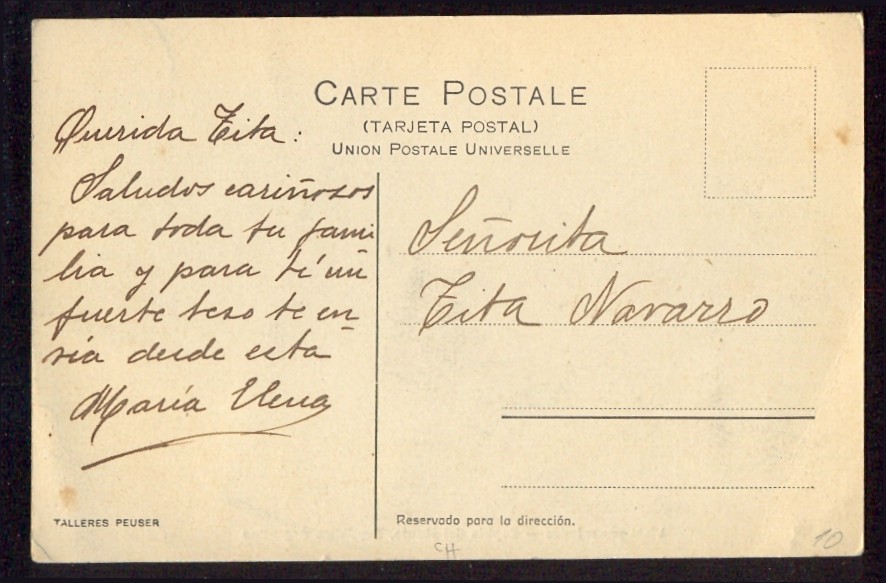 CARTE POSTALE
(TARJETA POSTAL)
UNION POSTALE UNIVERSELLE
Querida Tita:
Saludos cariñosos
para toda tu fami
lia y para tí un
fuerte beso te en
vía desde esta
María Elena
Señorita
Tita Navarro
TALLERES PEUSER
Reservado para la dirección.
CH
10